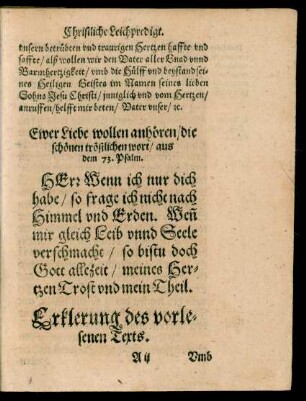 Chriſtliche Leichpredigt.
vnſern betrübten vnd traurigen Hertzen haffte vnd
ſaffte/ alß wollen wir den Vater aller Gnad vnnd
Barmhertzigkeit/ vmb die Hülff vnd beyſtand ſei-
nes Heiligen Geiſtes im Namen ſeines lieben
Sohns Jeſu Chriſti/ jnniglich vnd vom Hertzen/
anruffen/ helfft mir beten/ Vater vnſer/ ꝛc.
Ewer Liebe wollen anhören/ die
ſchönen tröſtlichen wort/ aus
dem 73. Pſalm.
HErꝛ Wenn ich nur dich
habe/ ſo frage ich nicht nach
Himmel vnd Erden. Weñ
mir gleich Leib vnnd Seele
verſchmacht/ ſo biſtu doch
Gott allezeit/ meines Her-
tzen Troſt vnd mein Theil.
Erklerung des vorle-
ſenen Texts.
A ij Vmb